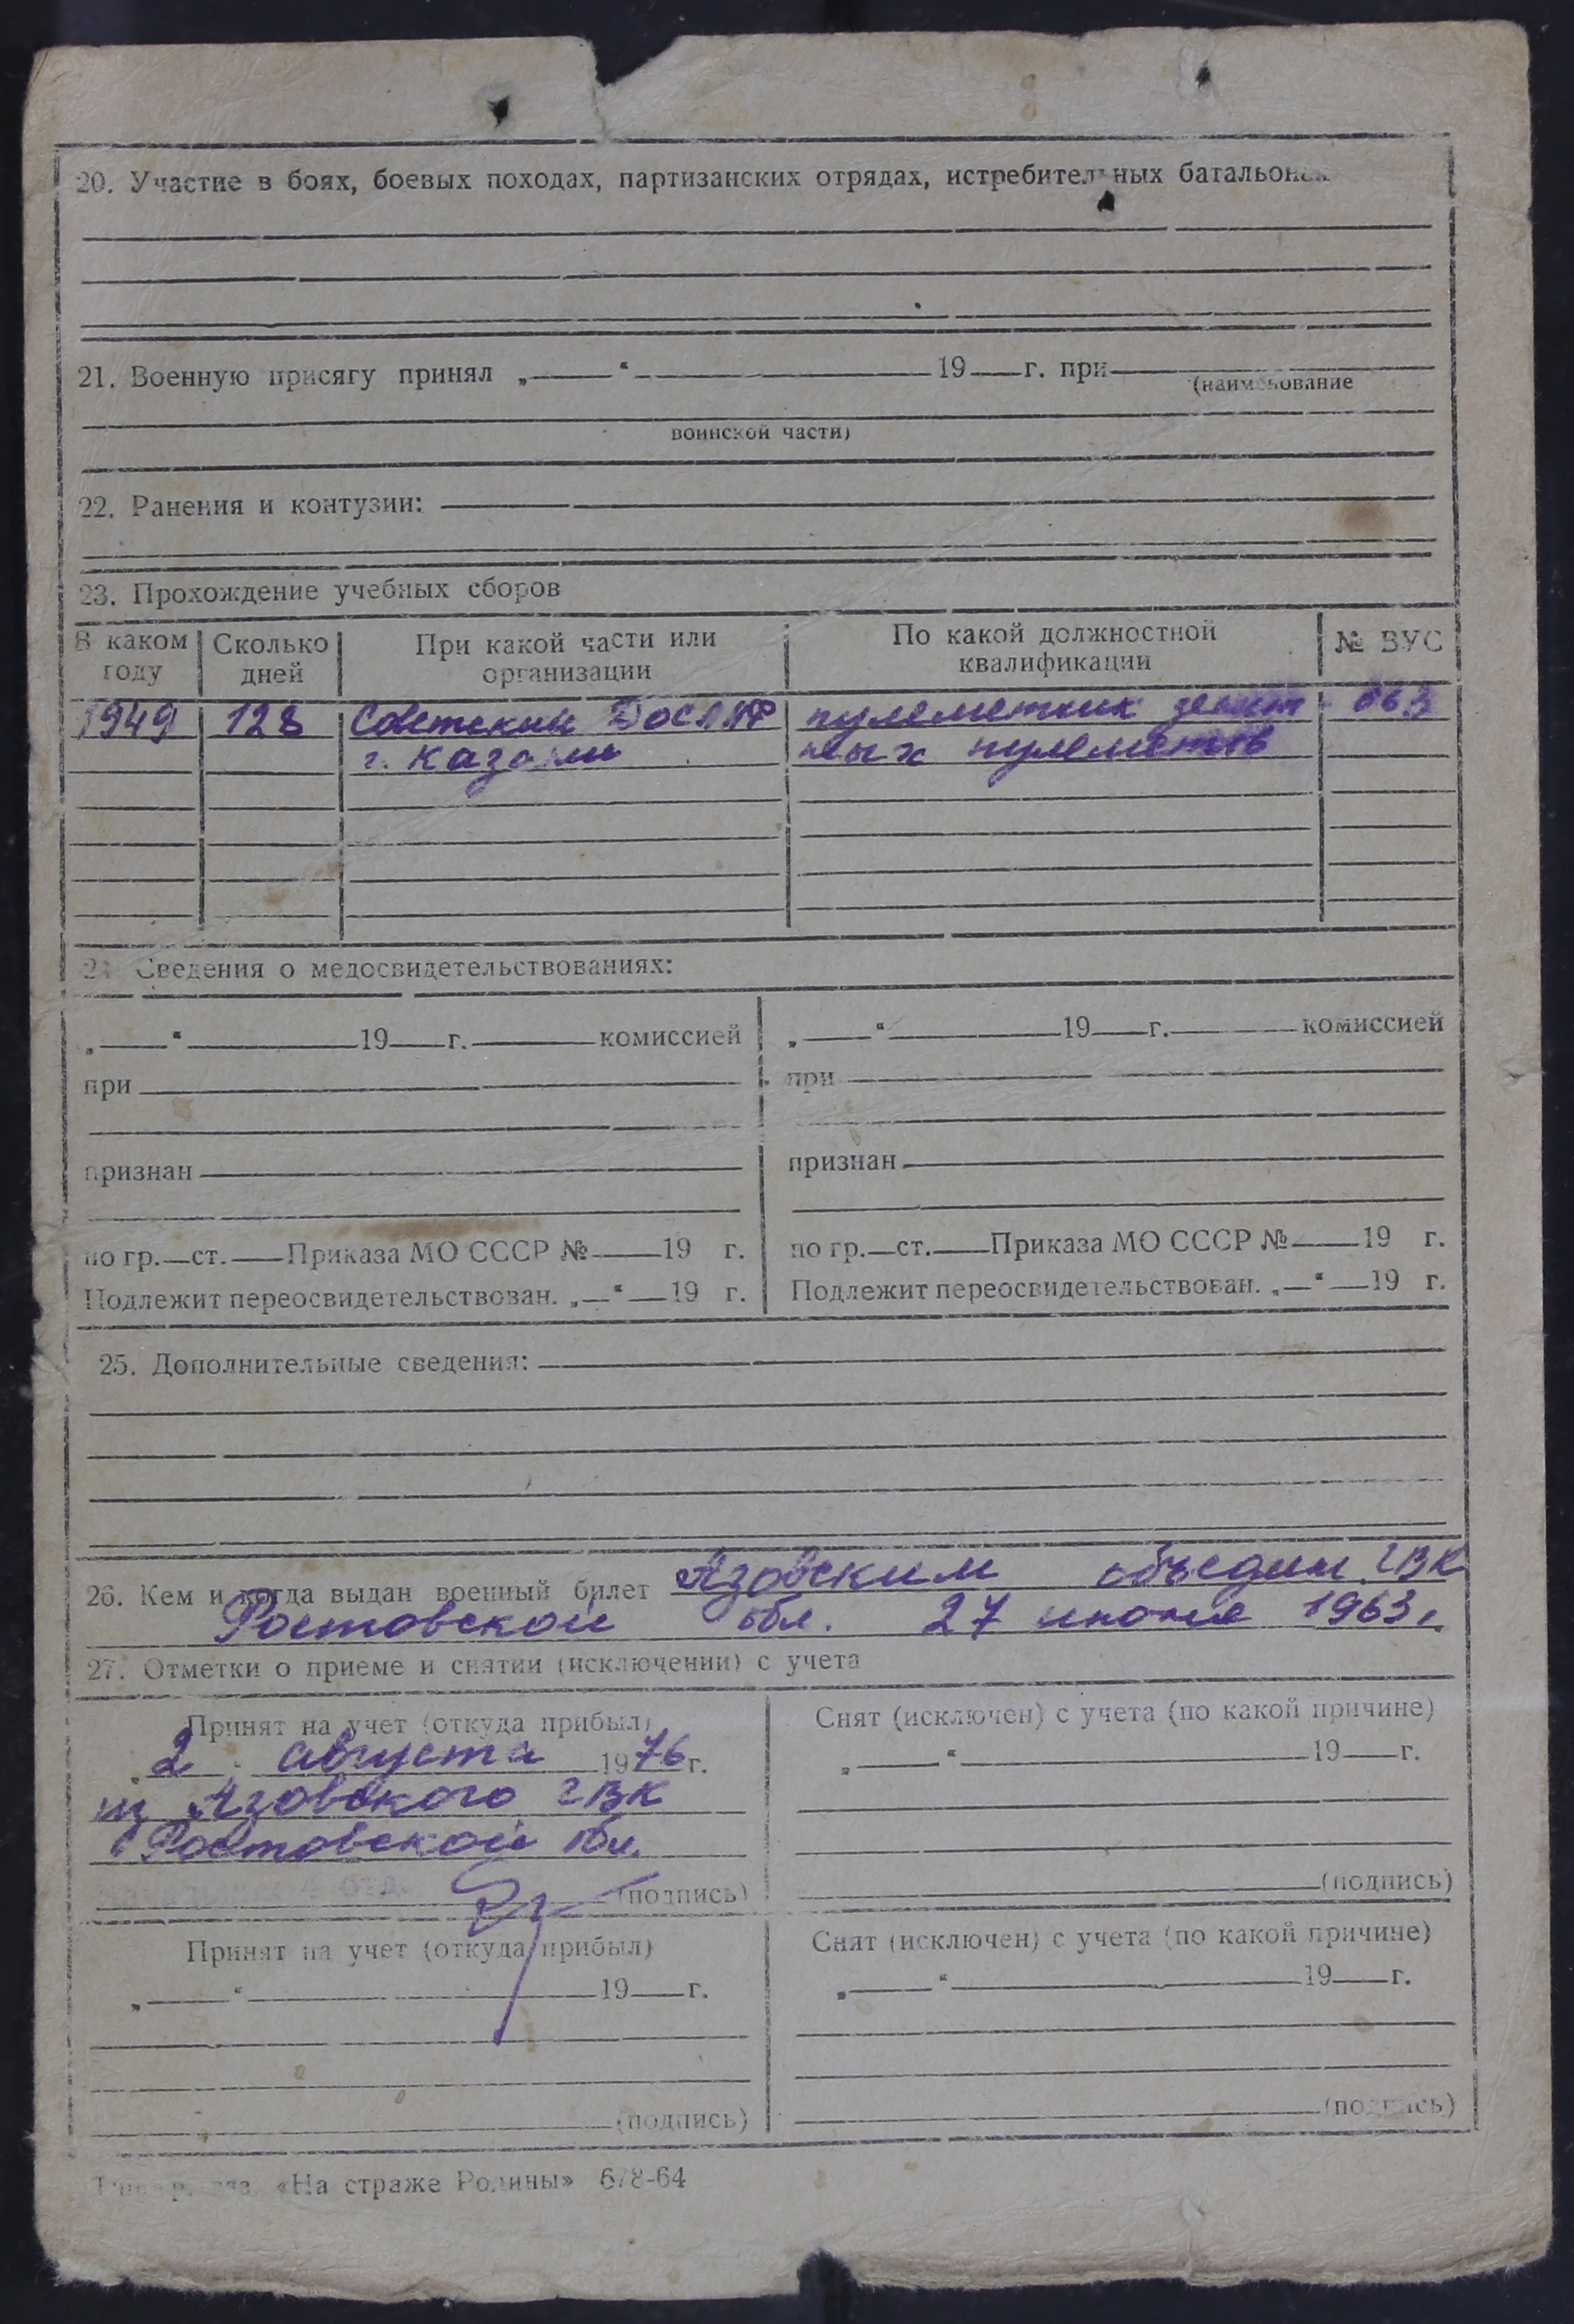 20. Участие в боях, боевых походах, партизанских отрядах, истребительных батальонах
21. Военную присягу принял „ “ 19 г. при
(наименование
воинской части)
22. Ранения и контузии:
23. Прохождение учебных сборов
В каком году | Сколько дней | При какой части или организации | По какой должностной квалификации | № ВУС
1949 | 128 | Советский ДОСАРФ | пулеметчик зенит- | 063
г. Казани | ных пулеметов
24 Сведения о медосвидетельствованиях:
„ “ 19 г. комиссией | „ “ 19 г. комиссией
при | при
признан | признан
по гр. ст. Приказа МО СССР № 19 г. | по гр. ст. Приказа МО СССР № 19 г.
Подлежит переосвидетельствован. „ “ 19 г. | Подлежит переосвидетельствован. „ “ 19 г.
25. Дополнительные сведения:
26. Кем и когда выдан военный билет Азовским объедин. ГВК
Ростовской обл. 27 июня 1963 г.
27. Отметки о приеме и снятии (исключении) с учета
Принят на учет (откуда прибыл) | Снят (исключен) с учета (по какой причине)
„2“ августа 1976 г. | „ “ 19 г.
из Азовского ГВК
Ростовской обл.
(подпись) | (подпись)
Принят на учет (откуда прибыл) | Снят (исключен) с учета (по какой причине)
„ “ 19 г. | „ “ 19 г.
(подпись) | (подпись)
«На страже Родины» 678-64